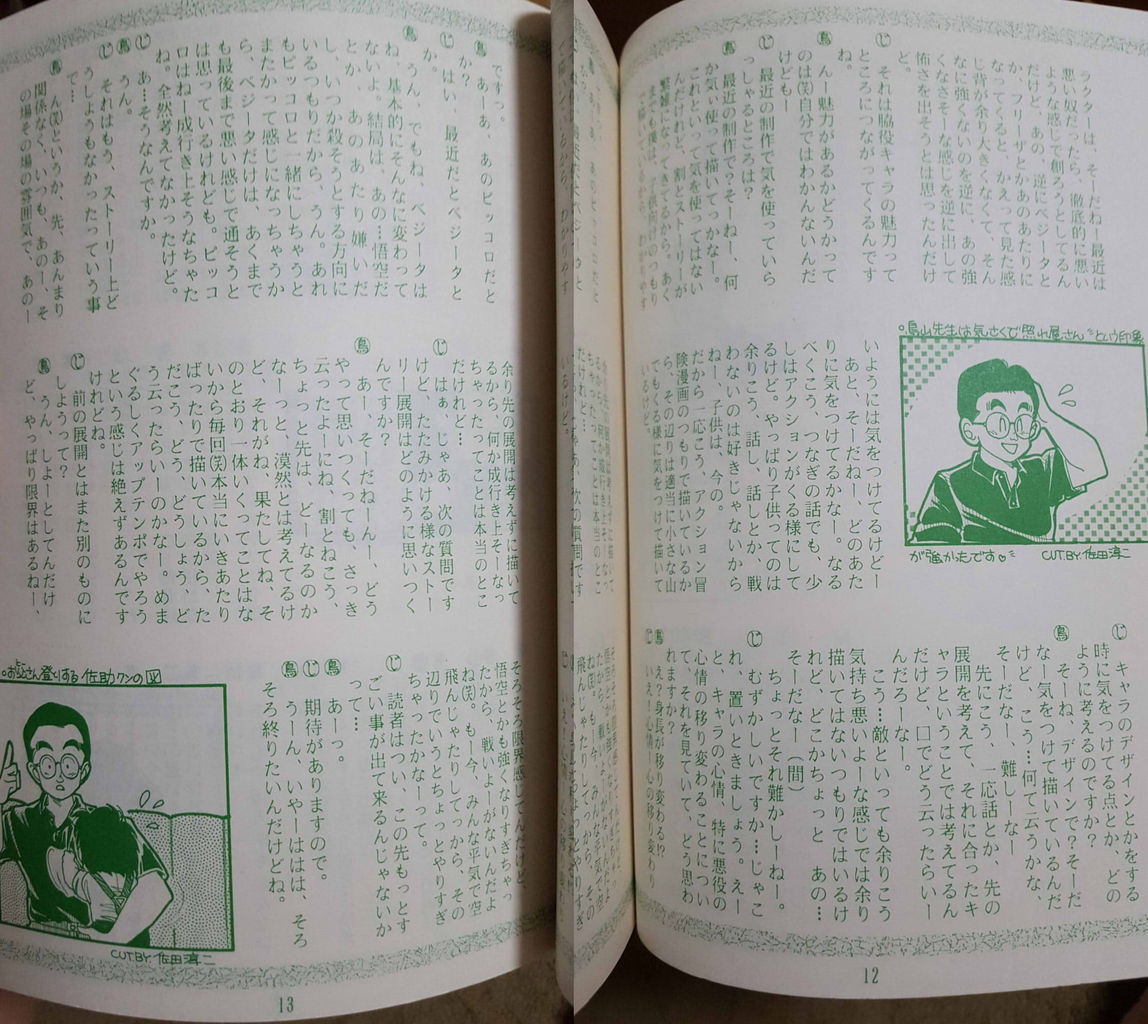 ラクターは、そーだねー最近は
悪い奴だったら、徹底的に悪い
ような感じで創ろうとしてるん
だけど、あの、逆にベジータと
か、フリーザとかあのあたりに
なってくると、かえって見た感
じ背が余り大きくなくて、そん
なに強くないのを逆に、あの強
そーな感じを逆に出して
怖さを出そうとは思ったんだけ
ど。
じ それは脇役キャラの魅力って
ところにつながってくるんです
ね。
鳥 んー魅力があるかどうかって
のは(笑)自分ではわかんないんだ
けどもー
じ 最近の制作で気を使っていら
っしゃるところは?
鳥 最近の制作で?そーねー、何
か気い使って描いてっかなー。
これといって気を使ってはない
んだけれど、割とストーリーが
繁雑になってきてるから。あく
までも僕は、子供向けのつもり
で描いているから、わかりやす
。鳥山先生は気さくで〝照れ屋さん〟という印象
が強かったです♡〃
CUT BY.佐田淳二
いようには気をつけてるけどー
あと、そーだねー、どのあた
りに気をつけてるかなー。なる
べくこう、つなぎの話でも、少
しはアクションがくる様にして
るけど。やっぱり子供ってのは
ね、こう、話し、話しとか、戦
わないのは好きじゃないから
ねー、子供は、今の。
だから一応こう、アクション冒
険漫画のつもりで描いているか
ら、その辺りは適当に小さな山
でもくる様に気をつけて描いて
いるけど。
じ キャラのデザインとかをする
時に気をつけてる点とか、どの
ように考えるのですか?
鳥 そーね、デザインで?そーだ
なー気をつけて描いているんだ
けど、こう…何て云うかな、
そーだなー、難しーな
先にこう、一応話とか、先の
展開を考えて、それに合ったキ
ャラということでは考えてるん
だけど、口でどう云ったらいー
んだろーな。
こう…敵といっても余りこう
気持ち悪いよーな感じでは余り
描いてはないつもりではいるけ
れど、どこかちょっと あの…
そーだなー(間)
ちょっとそれ難かしーねー。
じ むずかしいですか…じゃこ
れ、置いときましょう。えー
と、キャラの心情、特に悪役の
心情の移り変わることについ
て、それを見ていて、どう思わ
れますか?
鳥 え?身長が移り変わる!?
じ いえ、心情、心の移り変わり
12
ですっ。
鳥 あーあ、あのピッコロだと
か?
じ はい、最近だとベジータと
か。
鳥 うん、でもね、ベジータは
ね、基本的にそんなに変わって
ないよ。結局は、あの…悟空だ
とか、あのあたり嫌いだ
し、いつか殺そうとする方向に
いるつもりだから、うん。あれ
もピッコロと一緒にしちゃうと
またかって感じになっちゃうか
ら、ベジータだけは、あくまで
も最後まで悪い感じで通そうと
は思っているけれども。ピッコ
ロはねー成行き上そうなちゃった
ね。全然考えてなかったけど。
うん。
じ あ…そうなんですか。
鳥 ん(笑)というか、先、あんまり
関係なく、いつも、あのーそ
の場その場の雰囲気で、あのー
じ それはもう、ストーリー上ど
うしょうもなかったっていう事
で。
余り先の展開は考えずに描いて
るから、何か成行き上そーなっ
ちゃったってことは本当のとこ
だけれど…
じ はぁ、じゃあ、次の質問です
けど、たたみかける様なストー
リー展開はどのように思いつく
んですか?
鳥 あー、そーだねーんー、どう
やって思いつくっても、さっき
云ったよーにね、割とねこう、
ちょっと先は、どーなるのか
なーっと、漠然とは考えてるけ
ど、それがね、果たしてね、そ
のとおり一体いくってことはな
いから毎回(笑)本当にいきあたり
ばったりで描いているから、た
だこう、どう、どうしょう、ど
う云ったらいーのかなー。めま
ぐるしくアップテンポでやろう
という感じは絶えずあるんです
けれどね。
じ 前の展開とはまた別のものに
しようって?
鳥 うん、しょーとしてんだけ
ど、やっぱり限界はあるねー、
そろそろ限界感じてんだけど、
悟空とかも強くなりすぎちゃっ
たから、戦いよーがないんだよ
ね(笑)。もー今、みんな平気で空
飛んじゃたりしてっから、その
辺りでいうとちょっとやりすぎ
ちゃったかなーって。
じ 読者はつい、この先もっとす
ごい事が出て来るんじゃないか
って…
鳥 あーっ。
じ 期待がありますので。
鳥 うーん、いやーはは、そろ
そろ終りたいんだけどね。
。おとうさん登りする佐助クンの図
CUT.BY.佐田淳二
13